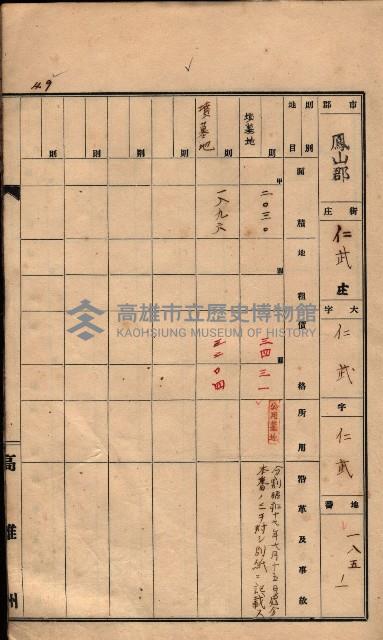 49
市郡
鳳山郡
街庄
仁武庄
大字
仁武
字
仁武
地番
一八五ノ一
則別
地目
面積
地租
價格
所用
沿革及事故
墳墓地
則
甲
二〇三〇
圓
三四三一
公用墓地
分割昭和十九年七月十五日處分
本番ノ二ヲ附シ別紙ニ記載ス
墳墓地
則
一八九六
三二〇四
則
則
則
則
高雄市立歷史博物館
KAOHSIUNG MUSEUM OF HISTORY
高雄州